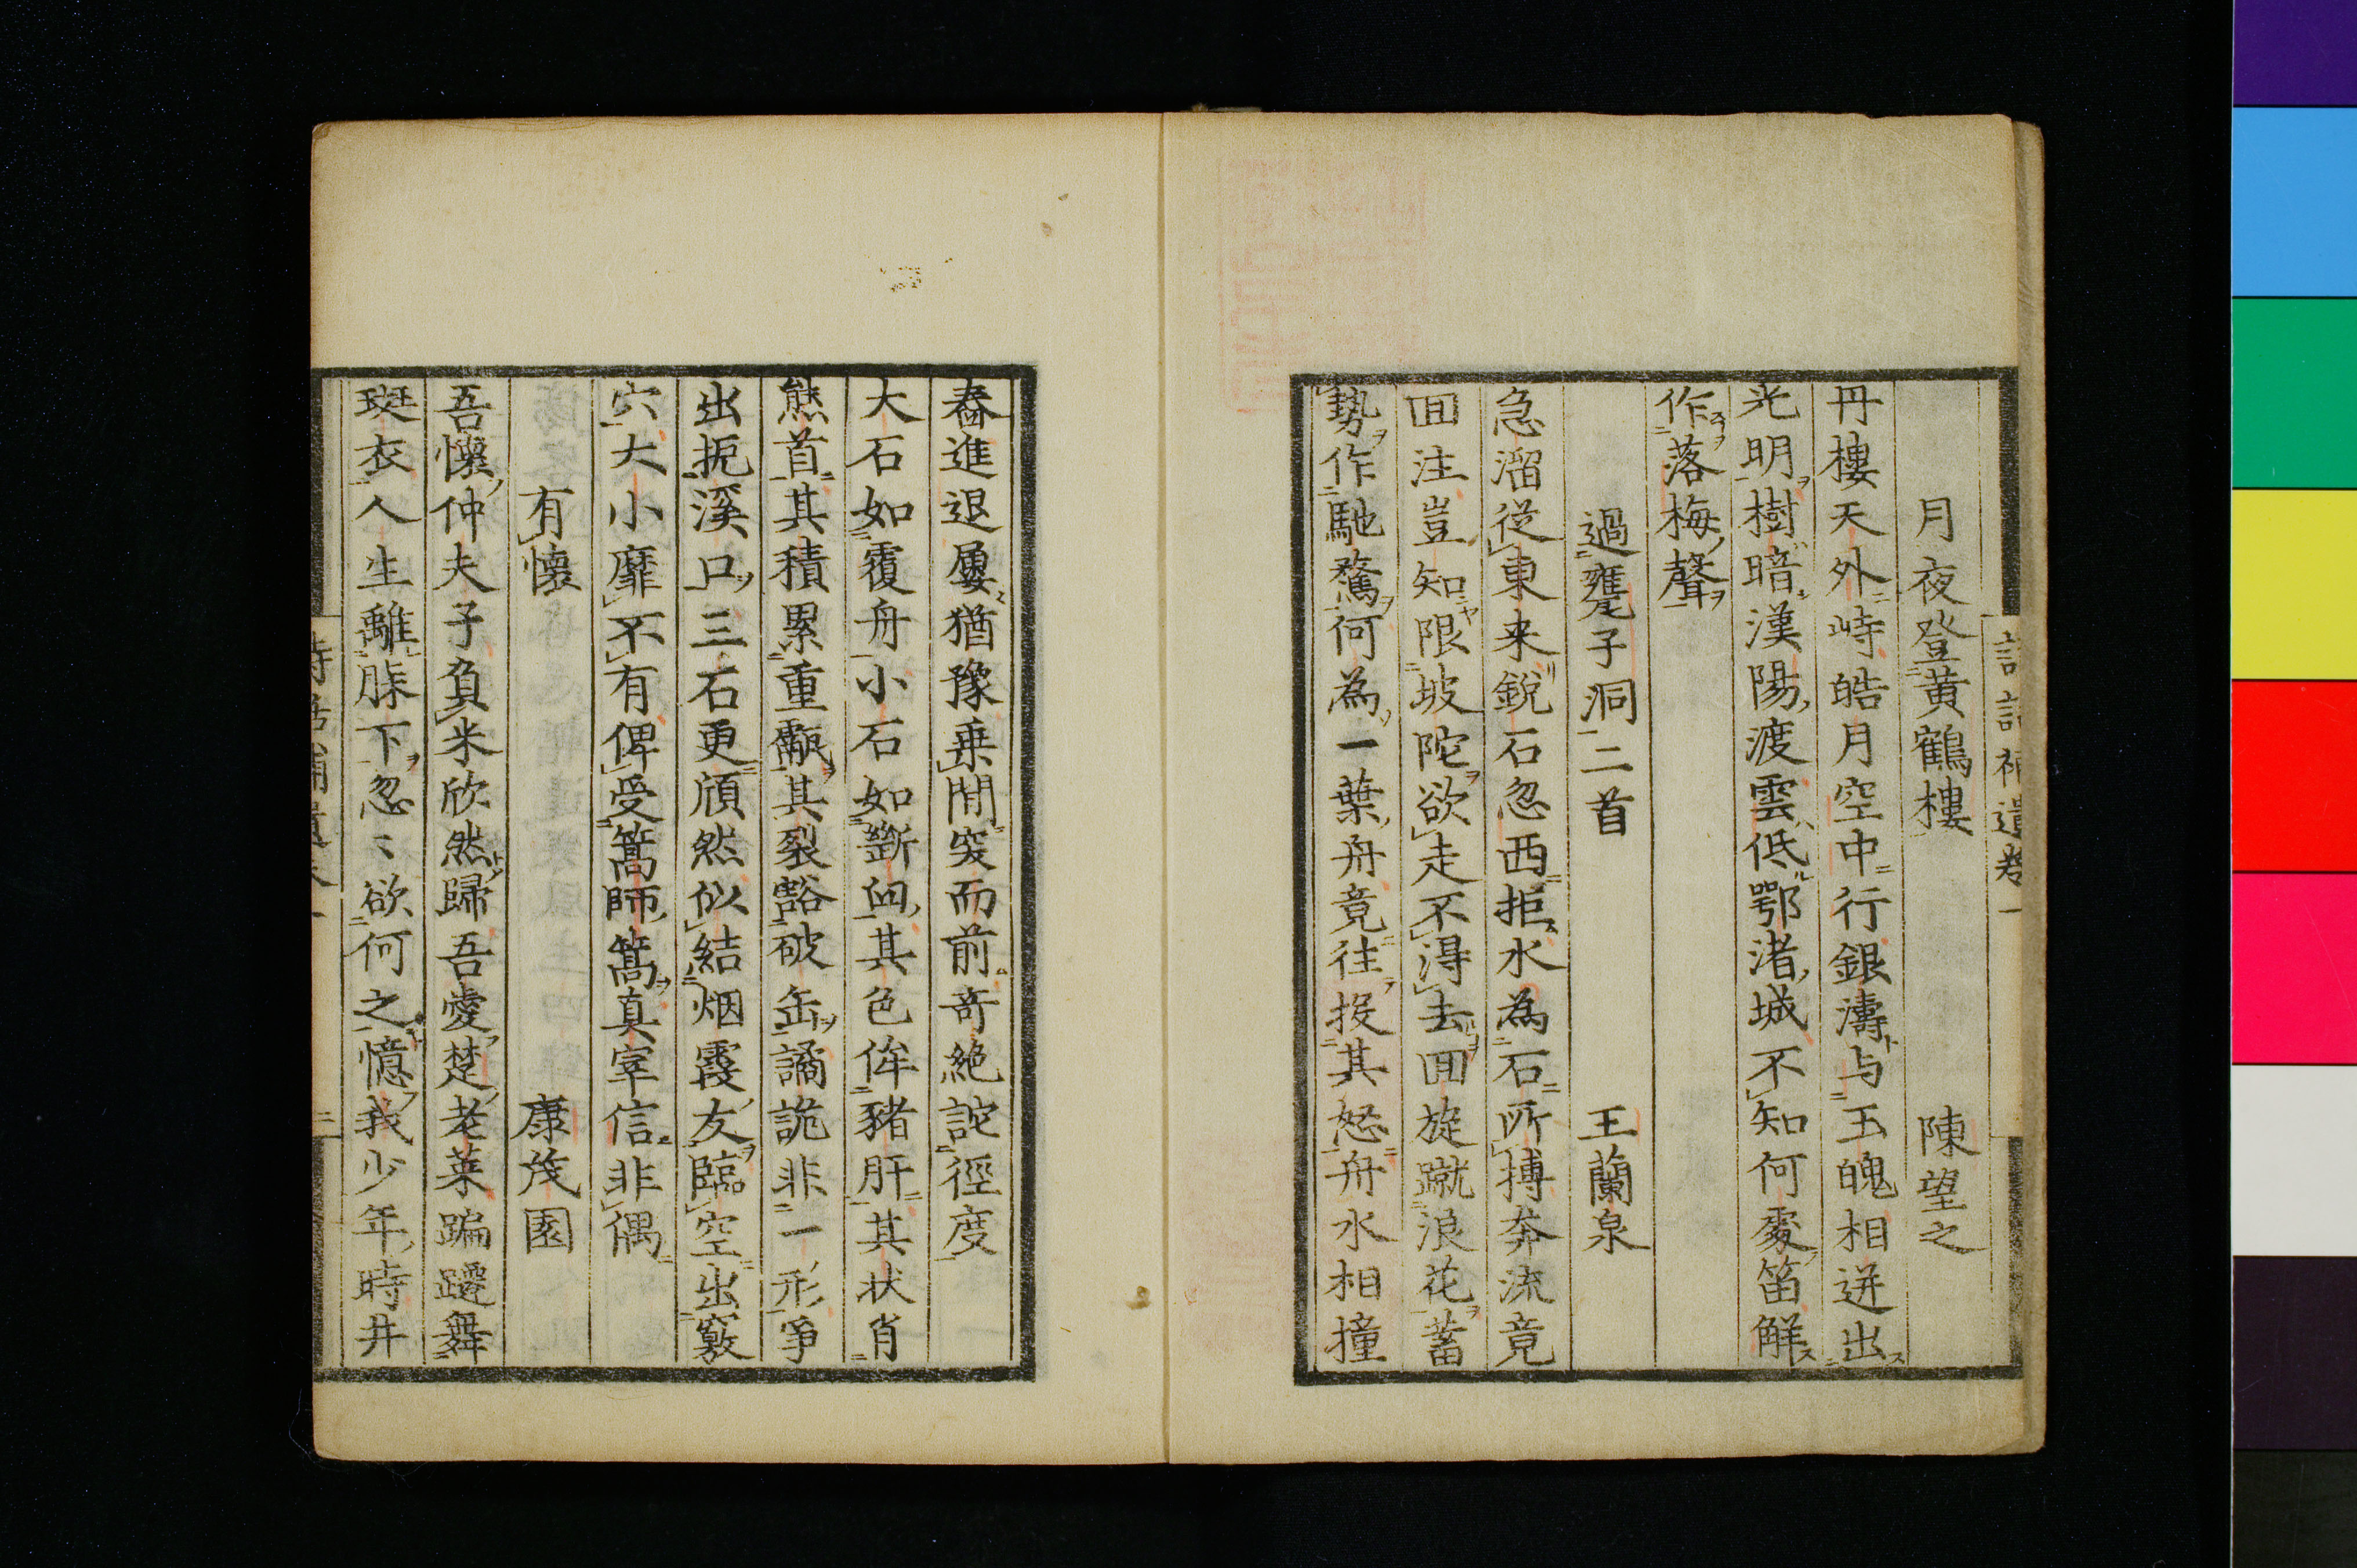 詩話補遺卷一
月夜登黃鶴樓　陳望之
丹樓天外峙皓月空中行銀濤与玉魄相迸出
光明樹暗漢陽渡雲低鄂渚城不知何處笛解
作落梅聲
過甕子洞二首　王蘭泉
急溜從東来銳石忽西拒水為石所搏奔流竟
囬注豈知限坡陀欲走不得去囬旋蹴浪花蓄
勢作馳騖何為一葉舟竟往投其怒舟水相撞
舂進退屢猶豫乗閒突而前奇絶詫徑度
大石如覆舟小石如斷臼其色侔豬肝其状肖
熊首其積累重甗其裂豁破缶譎詭非一形爭
出扼溪口三石更頎然似結烟霞友臨空出竅
穴大小靡不有俾受篙師篙真宰信非偶
有懐　康茂園
吾懐仲夫子負米欣然歸吾愛楚老萊蹁躚舞
斑衣人生離膝下忽〻欲何之憶我少年時井